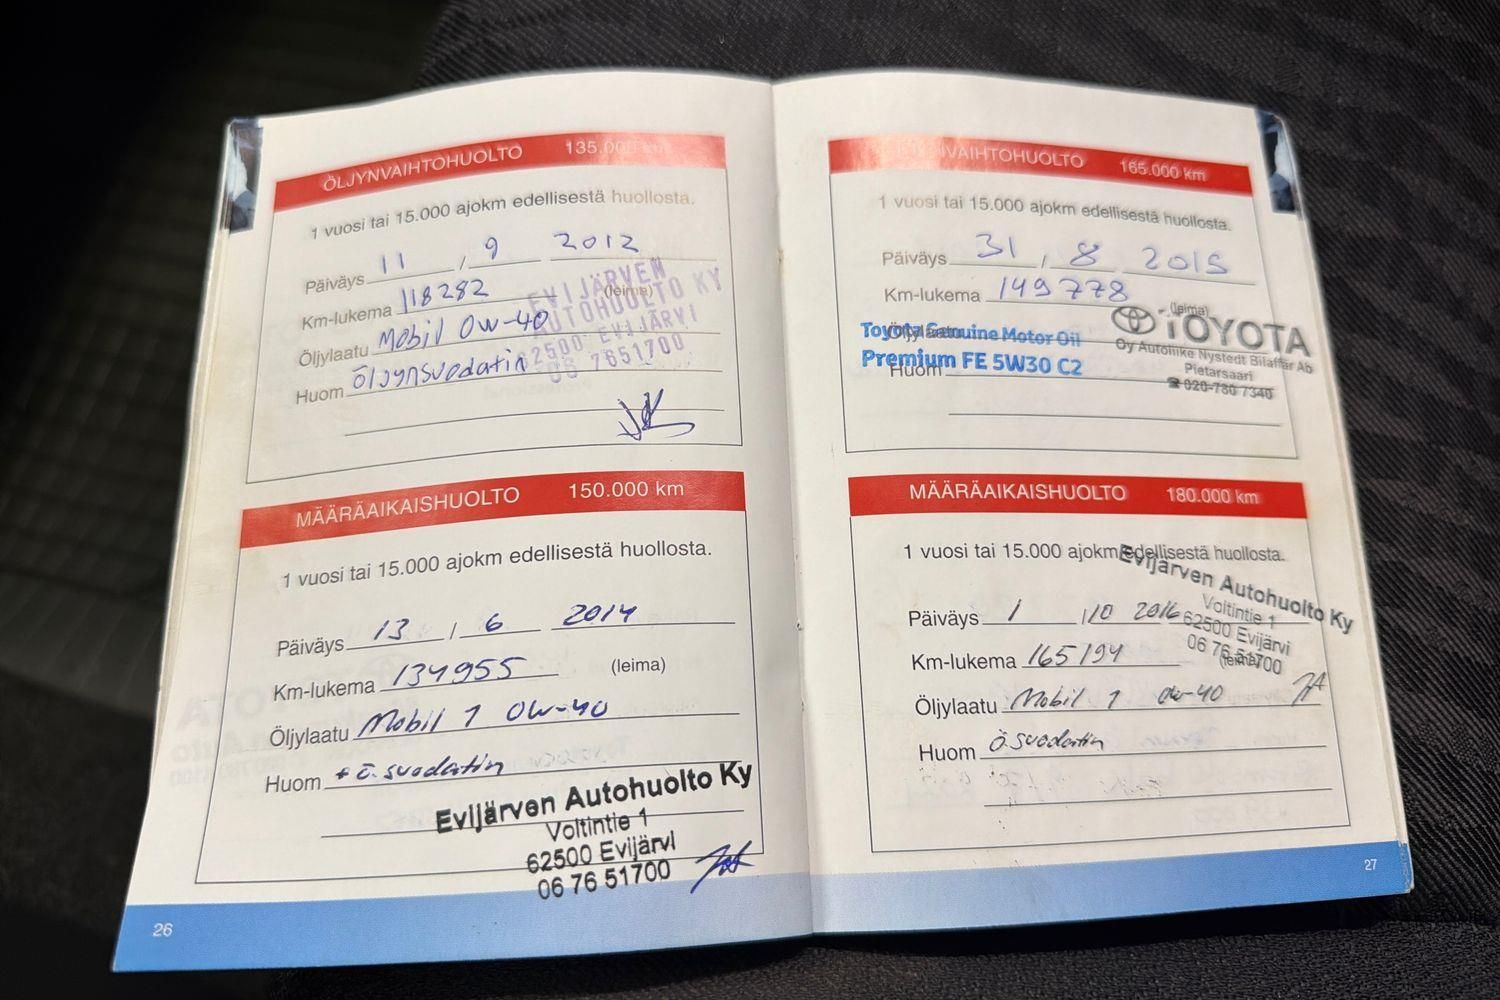 ÖLJYNVAIHTOHUOLTO 135.000 km
1 vuosi tai 15.000 ajokm edellisestä huollosta.
Päiväys 11, 9 2012
Km-lukema 118282 (leima)
Öljylaatu Mobil 0w-40
Huom öljynsuodatin
EVIJÄRVEN
AUTOHUOLTO KY
62500 EVIJÄRVI
06 7651700
MÄÄRÄAIKAISHUOLTO 150.000 km
1 vuosi tai 15.000 ajokm edellisestä huollosta.
Päiväys 13, 6 2014
Km-lukema 134955 (leima)
Öljylaatu Mobil 1 0w-40
Huom + ö.suodatin
Evijärven Autohuolto Ky
Voltintie 1
62500 Evijärvi
06 76 51700
26
165.000 km
1 vuosi tai 15.000 ajokm edellisestä huollosta.
Päiväys 31, 8 2015
Km-lukema 149778
(leima)
Öljylaatu
Toyota Genuine Motor Oil
Premium FE 5W30 C2
Huom
TOYOTA
Oy Autoliike Nystedt Bilaffär Ab
Pietarsaari
☎ 020-780 7340
MÄÄRÄAIKAISHUOLTO 180.000 km
1 vuosi tai 15.000 ajokm edellisestä huollosta.
Evijärven Autohuolto Ky
Voltintie 1
62500 Evijärvi
06 76 51700
Päiväys 1, 10 2016
Km-lukema 165194 (leima)
Öljylaatu Mobil 1 0w-40
Huom ö.suodatin
27